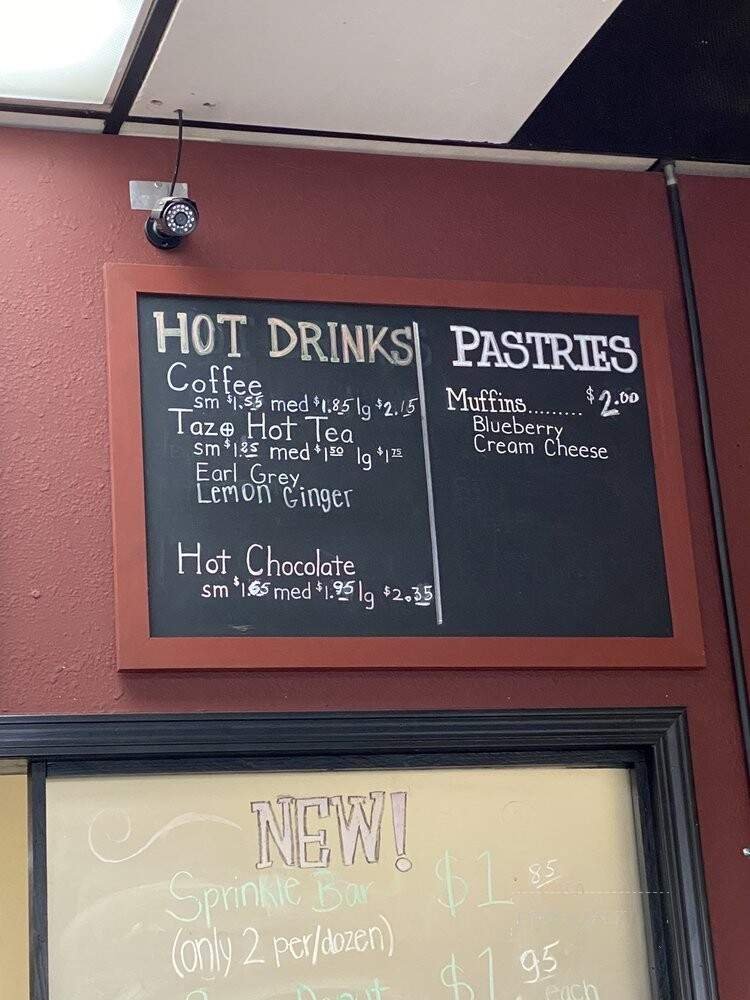 HOT DRINKS
Coffee
sm $1.55 med $1.85 lg $2.15
Tazo Hot Tea
sm $1.25 med $1.50 lg $1.75
Earl Grey
Lemon Ginger
Hot Chocolate
sm $1.65 med $1.95 lg $2.35
PASTRIES
Muffins......... $2.00
Blueberry
Cream Cheese
NEW!
Sprinkle Bar $1.85
(only 2 per/dozen)
Donut $1.95
each